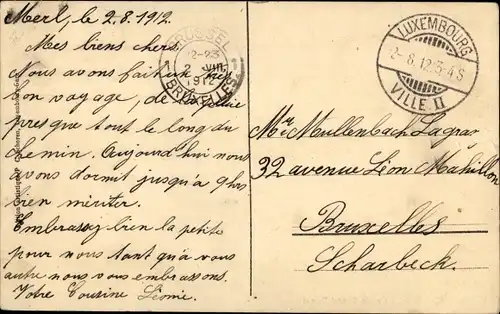 Merl, le 2.8.1912
Mes biens chers.
Nous avons fait un
bon voyage, de la pluie
presque tout le long du
chemin. Aujourd'hui nous
avons dormit jusqu'à 9 hrs
bien mériter.
Embrassez bien la petite
pour nous tant qu'à vous
autre nous vous embrassons.
Votre Cousine Léonie.
BRUSSEL
2 VIII
1912
BRUXELLES
LUXEMBOURG
2-8.12.3-4S
VILLE II
Mr Mullenbach Lagrar
32 avenue Léon Mahillon
Bruxelles
Scharbeck.